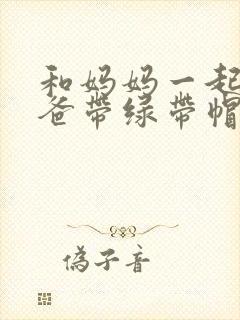 和妈妈一起
爸带绿带帽
偽子音